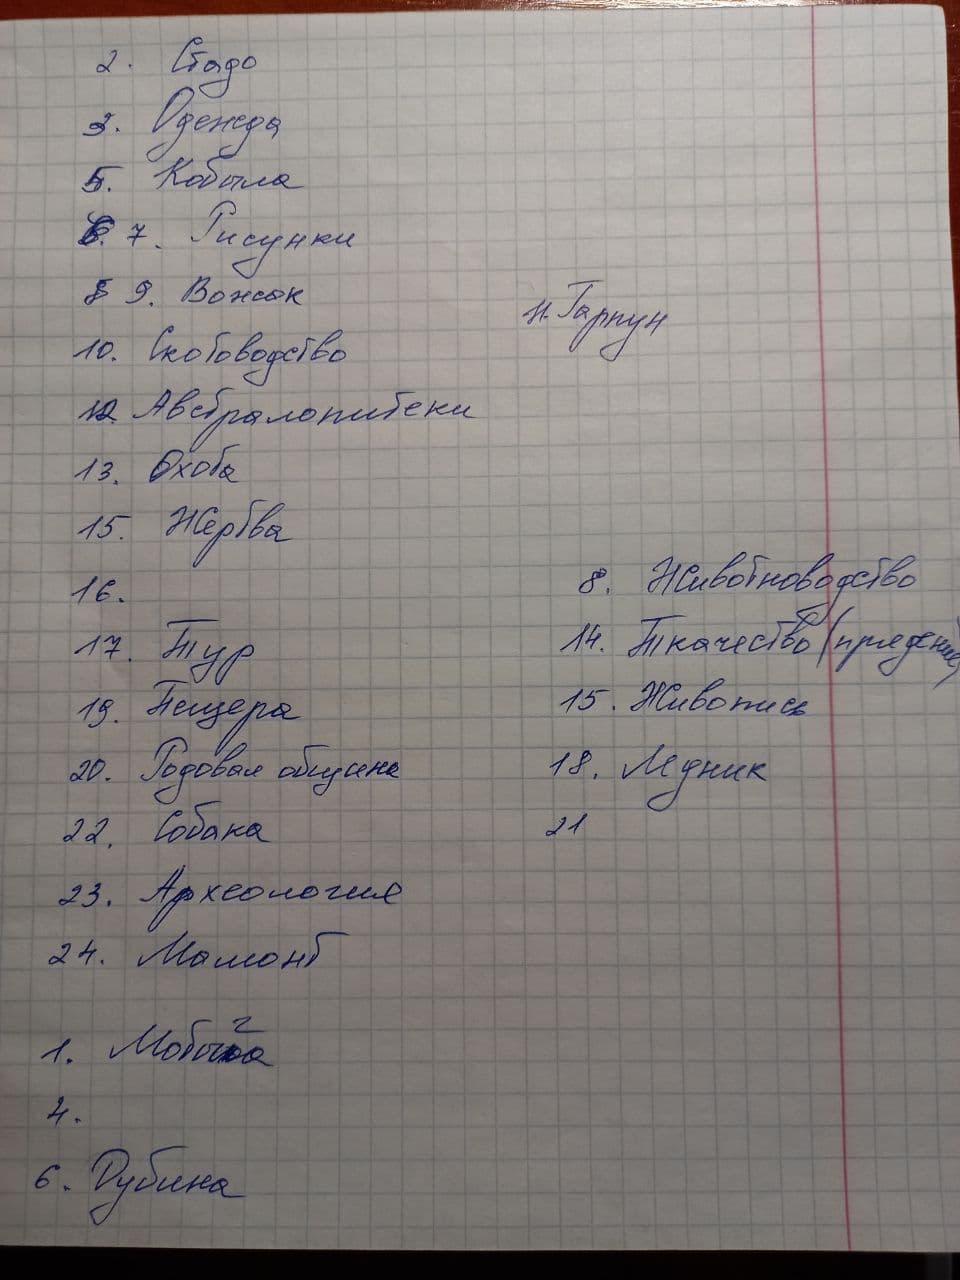 2. Стадо
3. Одежда
5. Кобыла
7. Рисунки
9. Вожак
10. Скотоводство
12 Австралопитеки
13. Охота
15. Жертва
16.
17. Тур
19. Пещера
20. Родовая община
22. Собака
23. Археология
24. Мамонт
1. Мотыга
4.
6. Дубина
11. Гарпун
8. Животноводство
14. Ткачество (прядение)
15. Живопись
18. Ледник
21